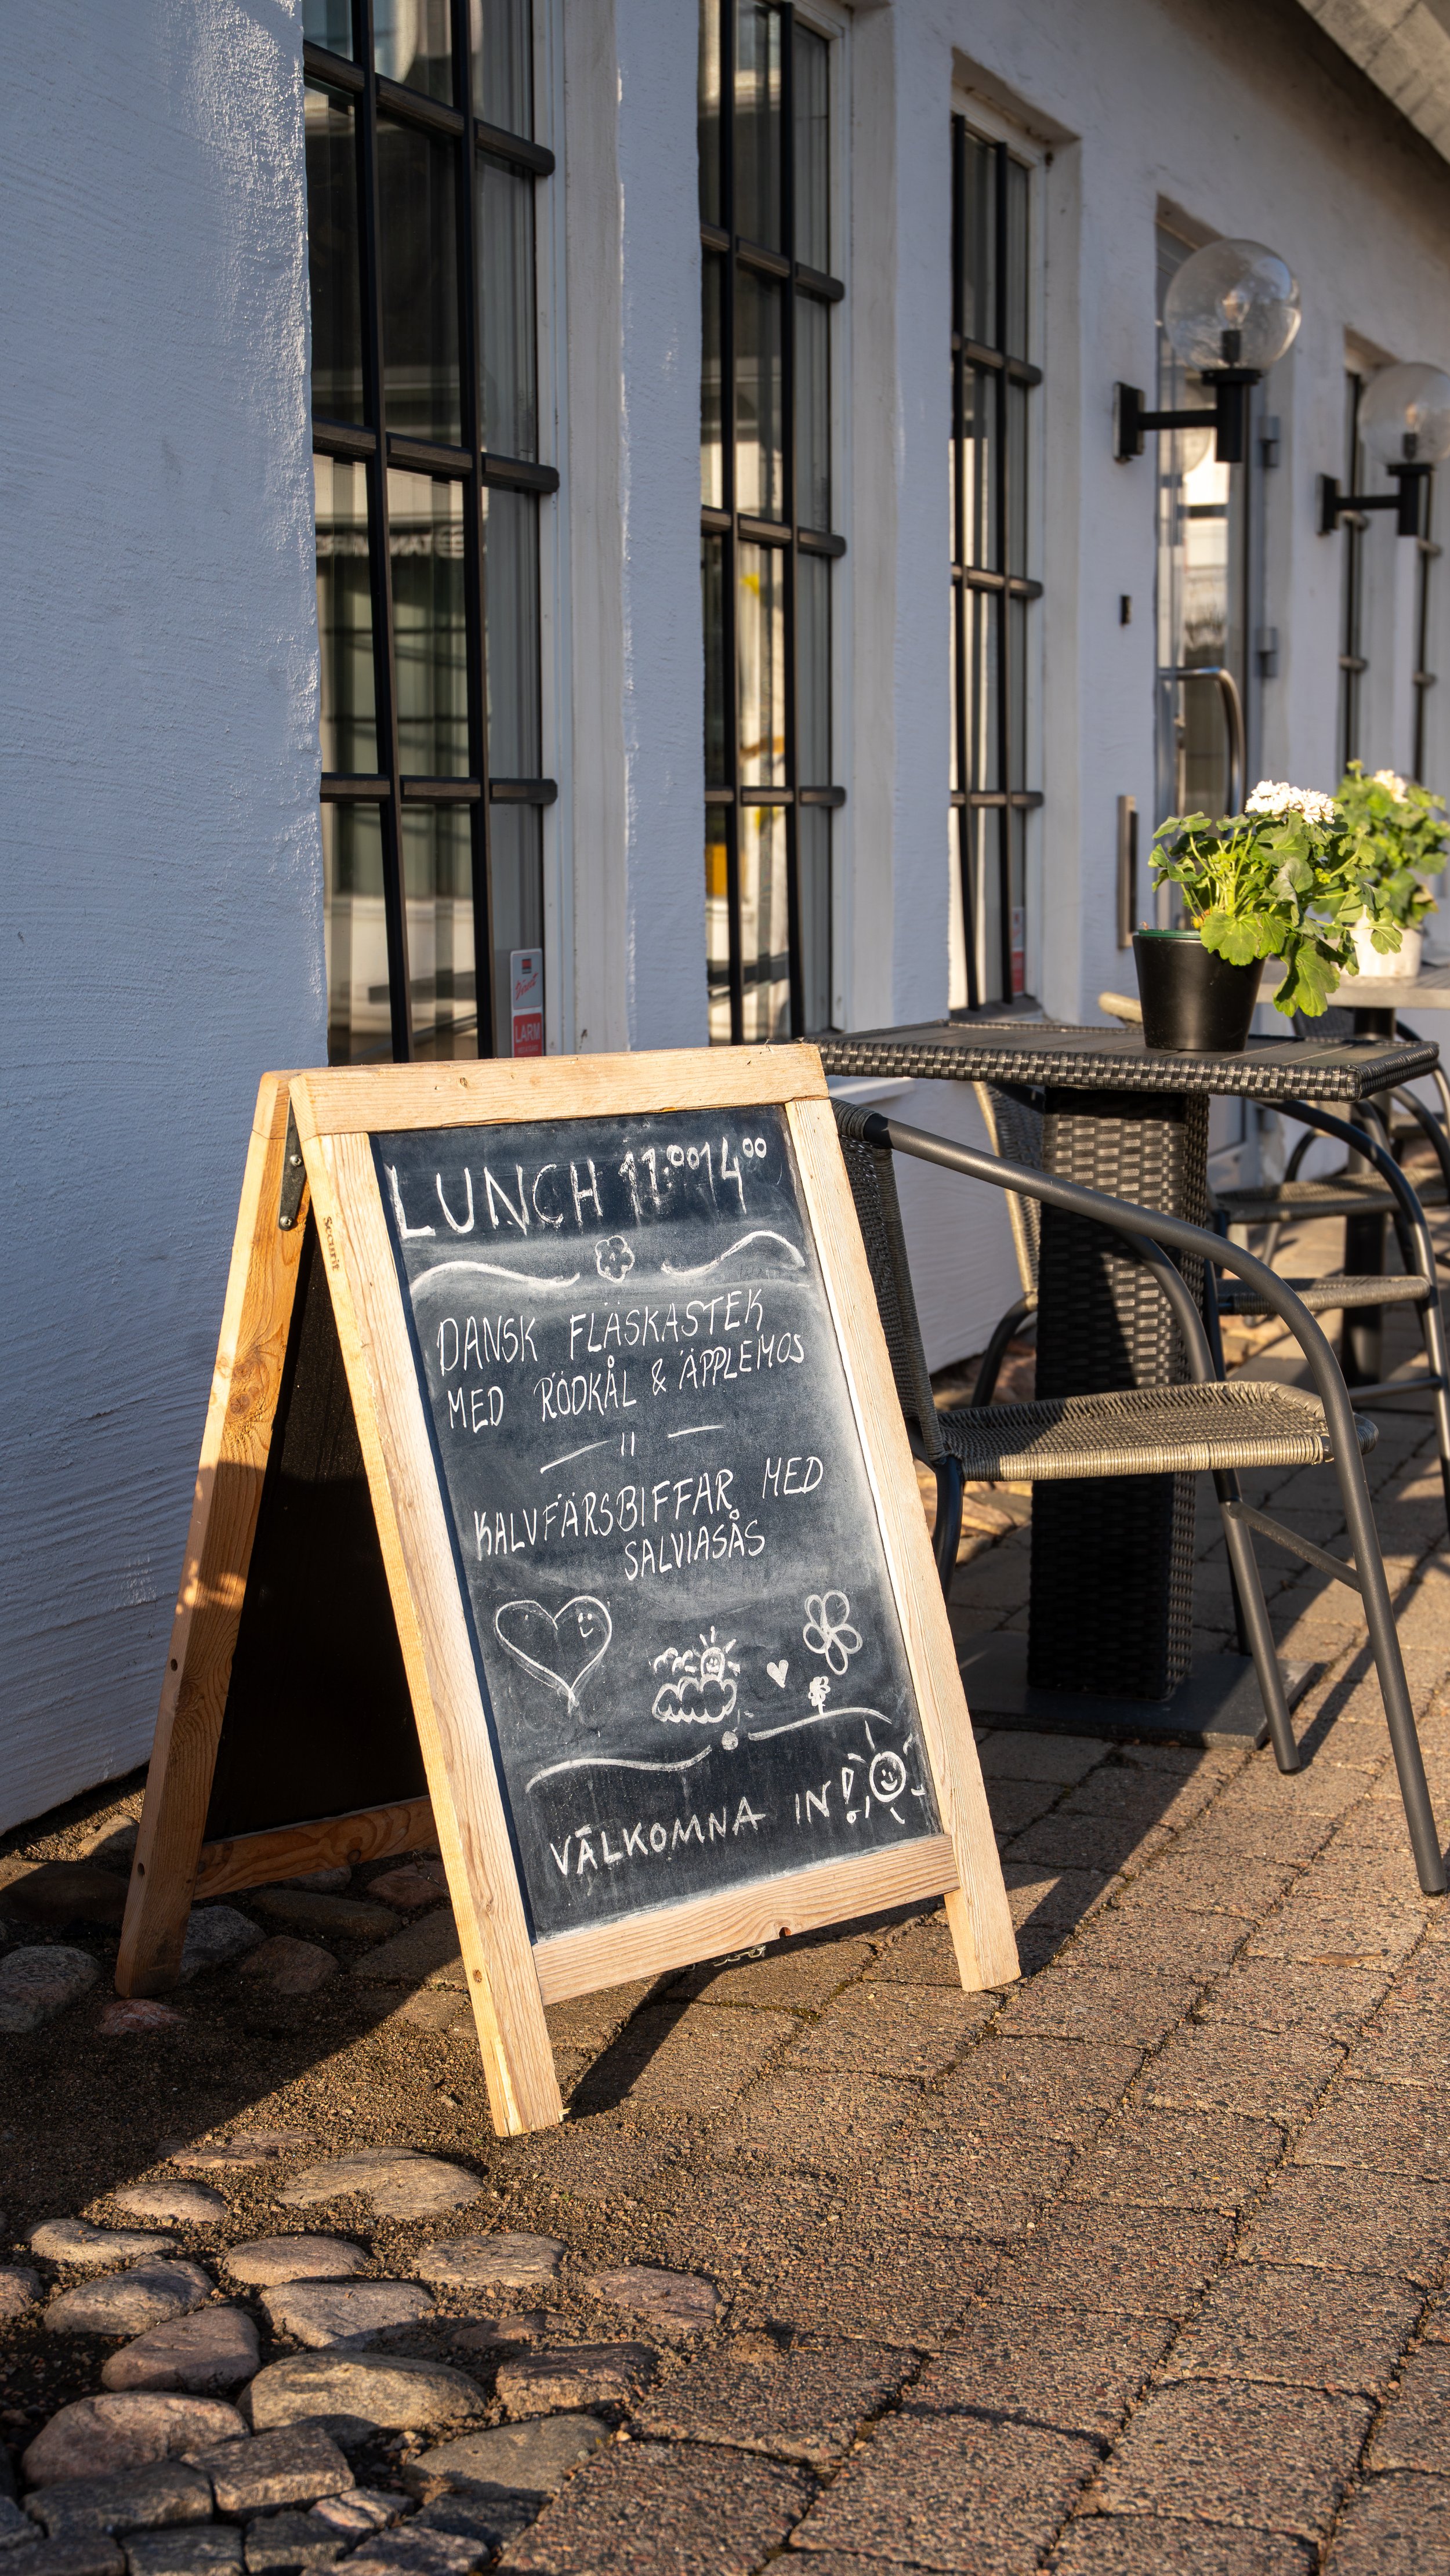 LUNCH 11:⁰⁰14⁰⁰
DANSK FLÄSKASTEK
MED RÖDKÅL & ÄPPLEMOS
KALVFÄRSBIFFAR MED
SALVIASÅS
VÄLKOMNA IN!
Securit
LARM